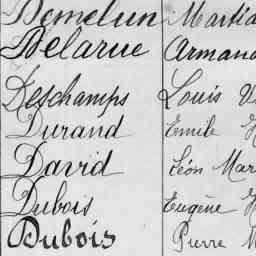 Demelun Martia
Delarue Armand
Deschamps Louis V
Durand Emile H
David Léon Mar
Dubois Eugène H
Dubois Pierre M